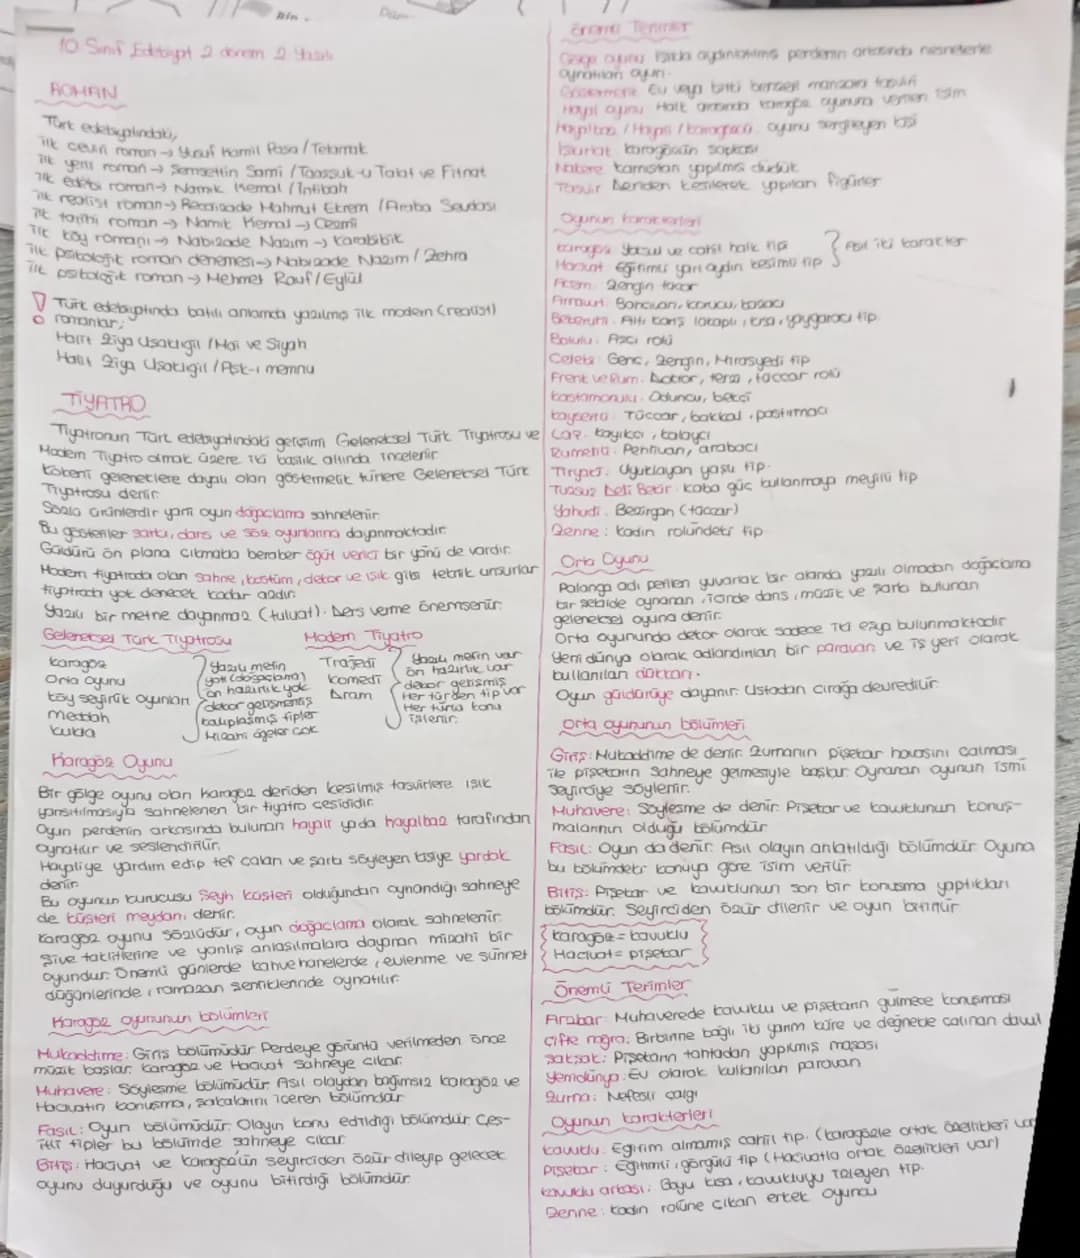 10 Sınıf Edebiyat 2 dönem 2 Yazılı
ROMAN
Türk edebiyatındaki,
ilk çeviri roman → Yusuf Kamil Paşa / Telamak
ilk yerli roman → Şemsettin Sami / Taaşşuk-u Talat ve Fitnat
ilk edebi roman → Namık Kemal / İntibah
ilk realist roman → Recaizade Mahmut Ekrem / Araba Sevdası
ilk tarihi roman → Namık Kemal → Cezmi
ilk köy romanı → Nabizade Nazım → Karabibik
ilk psikolojik roman denemesi → Nabizade Nazım / Zehra
ilk psikolojik roman → Mehmet Rauf / Eylül
! Türk edebiyatında batılı anlamda yazılmış ilk modern (realist)
romanlar;
Halit Ziya Uşaklıgil / Mai ve Siyah
Halit Ziya Uşaklıgil / Aşk-ı memnu
TİYATRO
Tiyatronun Türk edebiyatındaki gelişimi Geleneksel Türk Tiyatrosu ve
Modern Tiyatro olmak üzere iki başlık altında incelenir
Kökeni geleneklere dayalı olan göstermelik türlere Geleneksel Türk
Tiyatrosu denir
Sözlü ürünlerdir yani oyun doğaçlama sahnelenir
Bu gösteriler şarkı, dans ve söz oyunlarına dayanmaktadır.
Güldürü ön plana çıkmakla beraber öğüt verici bir yönü de vardır.
Modern tiyatroda olan sahne, kostüm, dekor ve ışık gibi teknik unsurlar
tiyatroda yok denecek kadar azdır.
Yazılı bir metne dayanmaz (tuluat). Ders verme önemsenir.
Geleneksel Türk Tiyatrosu
Karagöz
Orta Oyunu
Köy seyirlik oyunları
Meddah
Kukla
Yazılı metin
yok (doğaçlama)
ön hazırlık yok
dekor gelişmemiş
kalıplaşmış tipler
Mizahi ögeler çok
Modern Tiyatro
Trajedi
Komedi
Dram
Yazılı metin var
ön hazırlık var
dekor gelişmiş
Her türden tip var
Her türlü konu
işlenir.
Karagöz Oyunu
Bir gölge oyunu olan Karagöz deriden kesilmiş tasvirlere ışık
yansıtılmasıyla sahnelenen bir tiyatro çeşididir.
Oyun perdenin arkasında bulunan hayali ya da hayalbaz tarafından
oynatılır ve seslendirilir.
Hayaliye yardım edip tef çalan ve şarkı söyleyen kişiye yardak
denir
Bu oyunun kurucusu Şeyh Küşteri olduğundan oynandığı sahneye
de küşteri meydanı denir.
Karagöz oyunu sözlüdür, oyun doğaçlama olarak sahnelenir
Şive taklitlerine ve yanlış anlaşılmalara dayanan mizahi bir
oyundur. Önemli günlerde kahvehanelerde, evlenme ve sünnet
düğünlerinde, ramazan şenliklerinde oynatılır.
Karagöz oyununun bölümleri
Mukaddime: Giriş bölümüdür. Perdeye görüntü verilmeden önce
müzik başlar. Karagöz ve Hacivat Sahneye çıkar.
Muhavere: Söyleşme bölümüdür. Asıl olaydan bağımsız karagöz ve
Hacivatın konuşma, şakalarını içeren bölümdür
Fasıl: Oyun bölümüdür. Olayın konu edildiği bölümdür. Çeş-
itli tipler bu bölümde sahneye çıkar.
Bitiş: Hacivat ve Karagöz'ün seyirciden özür dileyip gelecek
oyunu duyurduğu ve oyunu bitirdiği bölümdür.
Önemli Terimler
Gölge oyunu: Işıkla aydınlatılmış perdenin arkasında nesnelerle
oynatılan oyun.
Göstermelik Ev veya bitki benzeri manzara tasviri
Hayal oyunu Halk arasında karagöz oyununa verilen isim
Hayalbaz / Hayali / karagözcü: oyunu sergileyen kişi
Işkırlak karagözün şapkası
Nakere: kamıştan yapılmış düdük
Tasvir Deriden kesilerek yapılan figürler
Oyunun karakterleri
Karagöz Yoksul ve cahil halk tipi
Hacivat: Eğitimli yarı aydın kesimli tip
} Asıl iki karakter
Acem: Zengin tacir
Arnavut: Bahçıvan, korucu, bozacı
Beberuhi: Altı karış lakaplı, kısa, yaygaracı tip
Bolulu: Aşçı rolü
Çelebi: Genç, Zengin, Mirasyedi tip
Frenk ve Rum: Doktor, terzi, tüccar rolü
Kastamonulu: Oduncu, bekçi
Kayserili: Tüccar, bakkal, pastırmacı
Laz: Kayıkçı, kalaycı
Rumelili: Pehlivan, arabacı
Tiryaki: Uyuklayan yaşlı tip.
Tuzsuz Deli Bekir: Kaba güç kullanmaya meyilli tip
Yahudi: Bezirgan (tüccar)
Zenne: Kadın rolündeki tip
Orta Oyunu
Palanga adı verilen yuvarlak bir alanda yazılı olmadan doğaçlama
bir şekilde oynanan, içinde dans, müzik ve şarkı bulunan
geleneksel oyuna denir.
Orta oyununda dekor olarak sadece iki eşya bulunmaktadır
Yeni dünya olarak adlandırılan bir paravan; ve iş yeri olarak
kullanılan dükkan.
Oyun güldürüye dayanır. Ustadan çırağa devredilir.
Orta oyununun bölümleri
Giriş: Mukaddime de denir. Zurnanın pişekar havasını çalması
ile pişekarın Sahneye gelmesiyle başlar. Oynanan oyunun ismi
seyirciye söylenir.
Muhavere: Söyleşme de denir. Pişekar ve kavuklunun konuş-
malarının olduğu bölümdür
Fasıl: Oyun da denir. Asıl olayın anlatıldığı bölümdür. Oyuna
bu bölümdeki konuya göre isim verilir.
Bitiş: Pişekar ve kavuklunun son bir konuşma yaptıkları
bölümdür. Seyirciden özür dilenir ve oyun bitirilir
Karagöz = kavuklu
Hacivat = pişekar
Önemli Terimler
Arzbar: Muhaverede kavuklu ve pişekarın gülmece konuşması
Çifte nağra: Birbirine bağlı iki yarım küre ve değnekle çalınan davul
Şakşak: Pişekarın tahtadan yapılmış maşası
Yenidünya: Ev olarak kullanılan paravan
Zurna: Nefesli çalgı
Oyunun karakterleri
Kavuklu: Eğitim almamış cahil tip. (karagözle ortak özellikleri var
Pişekar: Eğitimli, görgülü tip (Hacivatla ortak özellikleri var)
Kavuklu arkası: Boyu kısa, kavukluyu izleyen tip.
Zenne: kadın rolüne çıkan erkek oyuncu